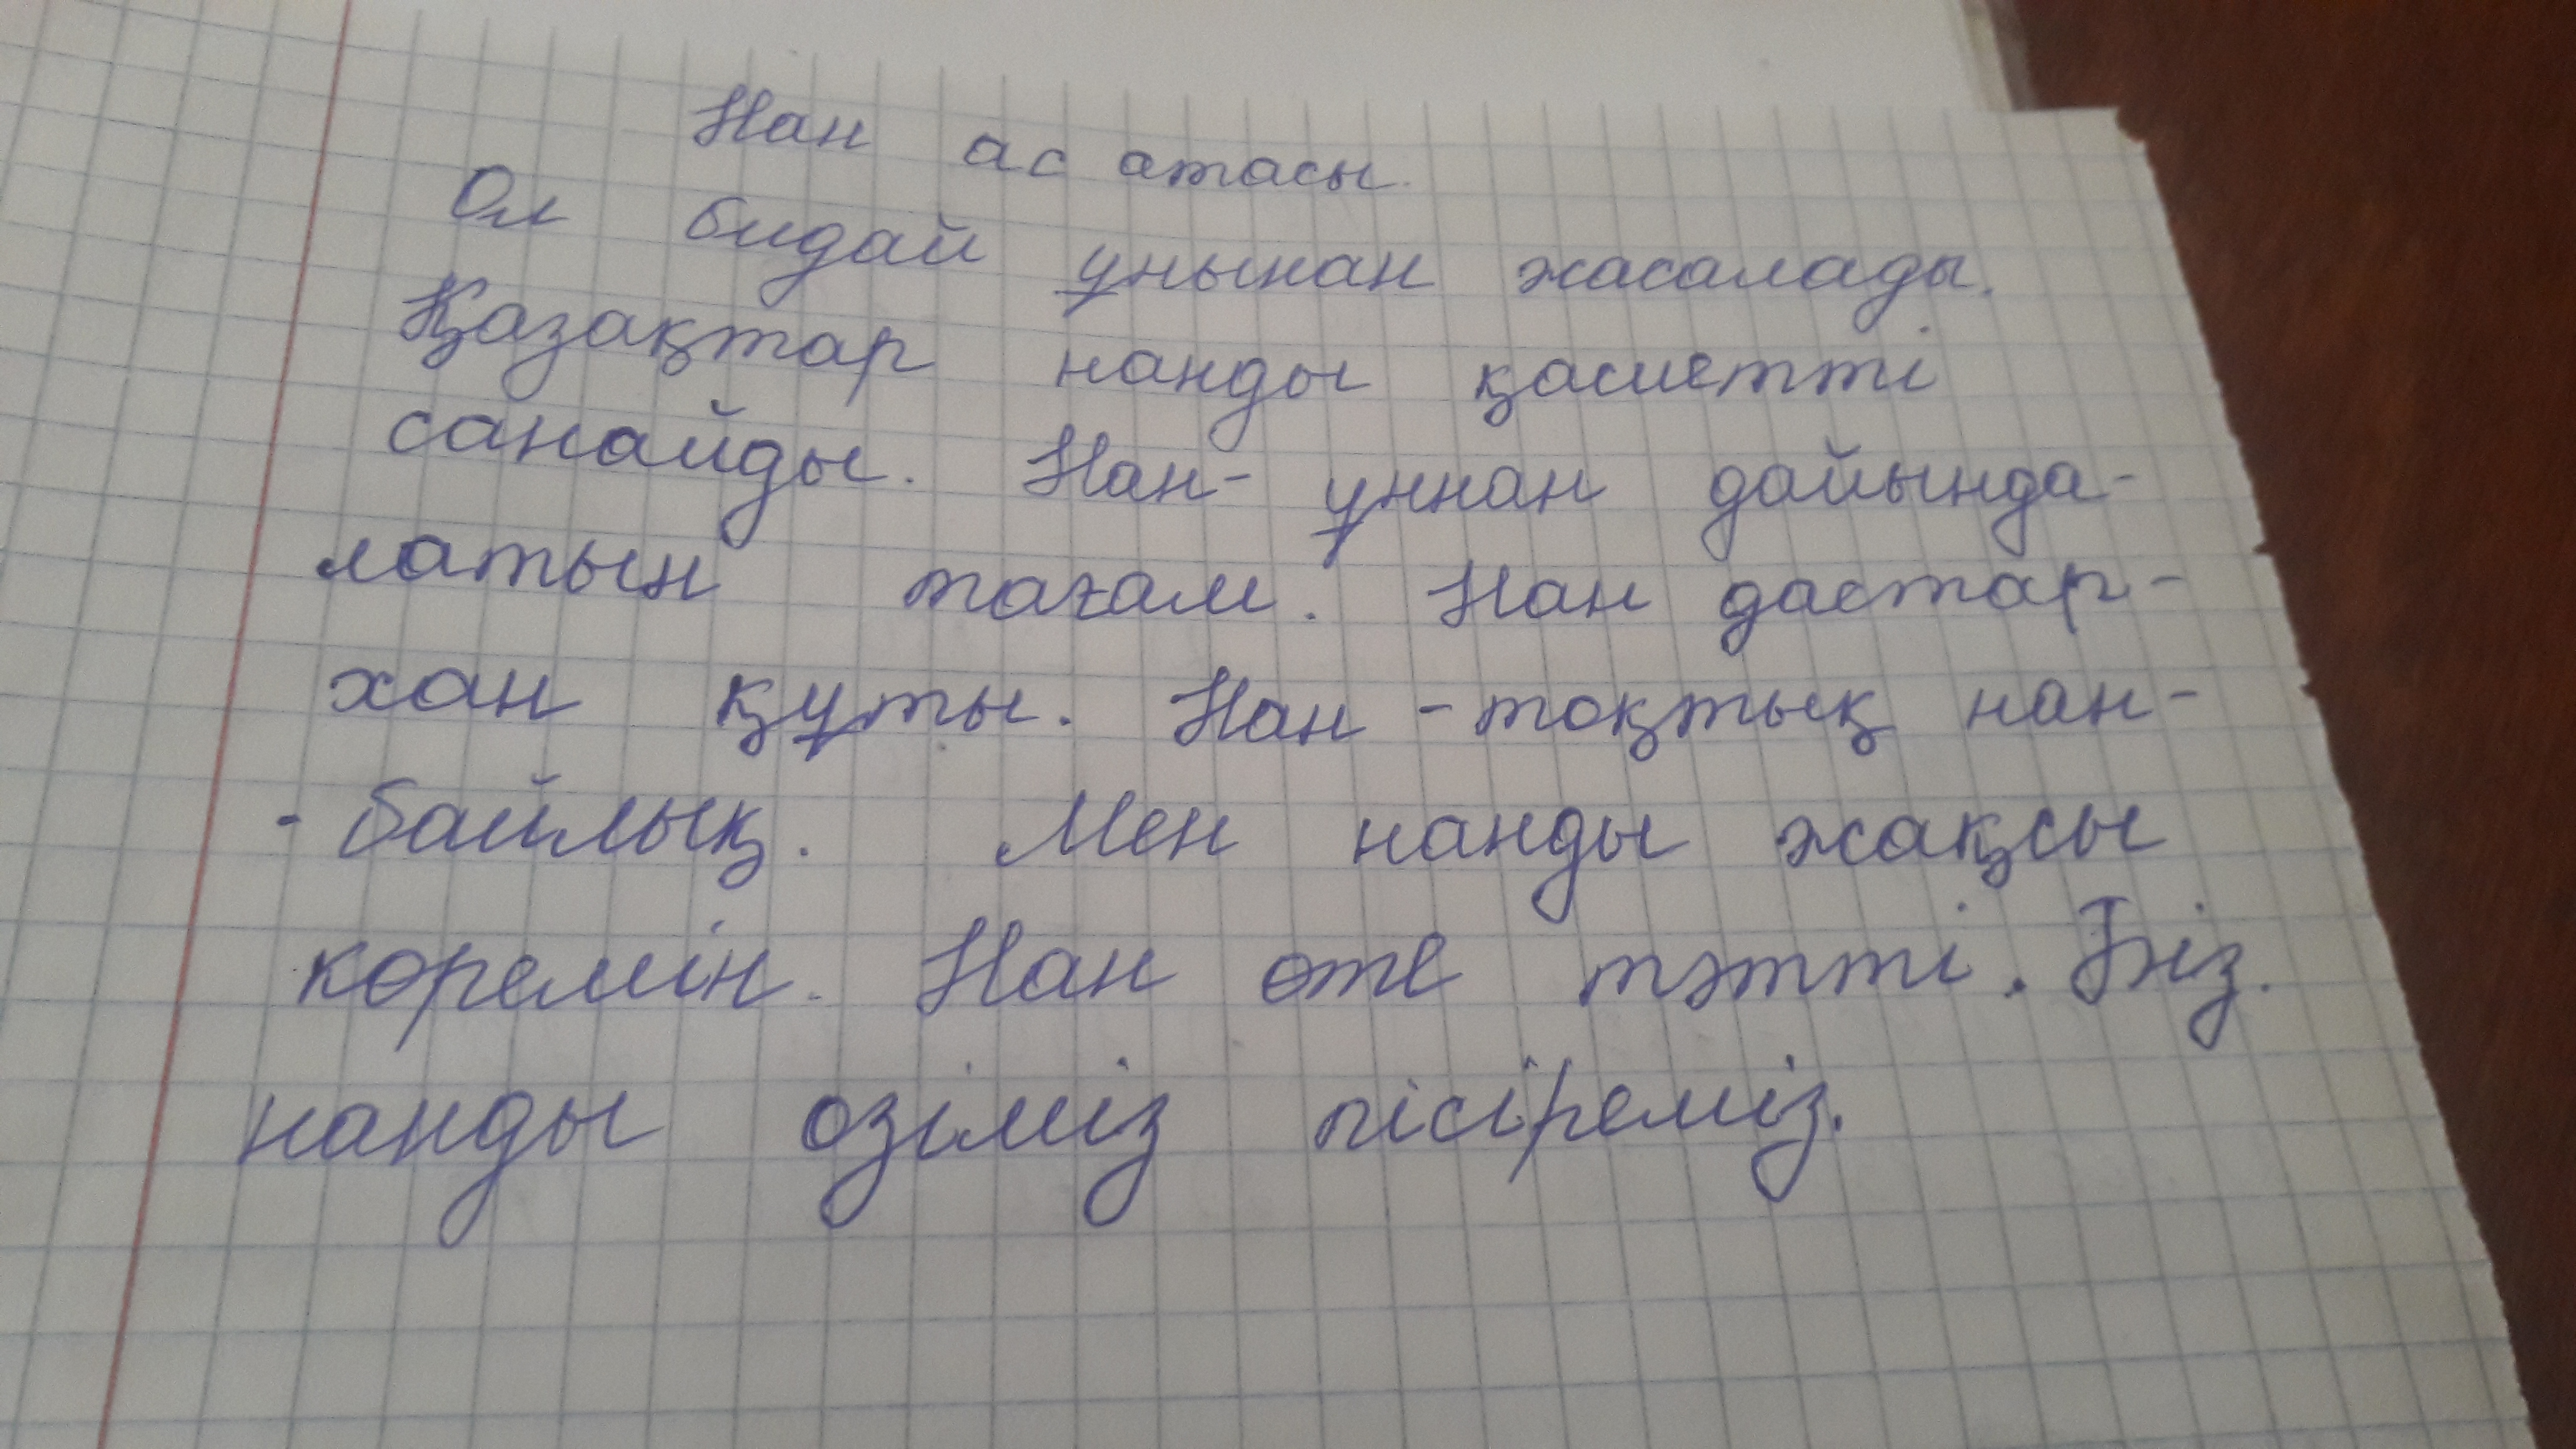 Нан ас атасы.
Ол бидай ұнынан жасалады.
Қазақтар нанды қасиетті
санайды. Нан- ұннан дайында-
латын тағам. Нан дастар-
хан құты. Нан -тоқтық нан-
-байлық. Мен нанды жақсы
көремін. Нан өте тәтті. Біз.
нанды өзіміз пісіреміз.